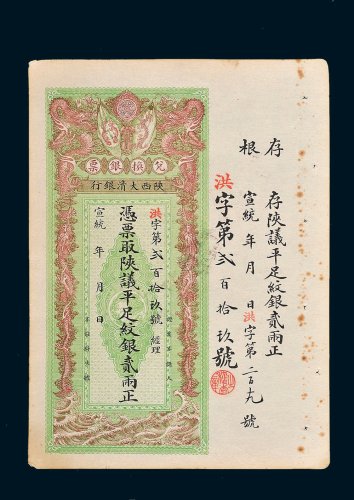 存根
存陝議平足紋銀貳兩正
宣統 年 月 日 洪字第二百十九號
洪字第貳百拾玖號
兌換銀票
陝西大清銀行
洪字第貳百拾玖號 經理
憑票取陝議平足紋銀貳兩正
宣統 年 月 日